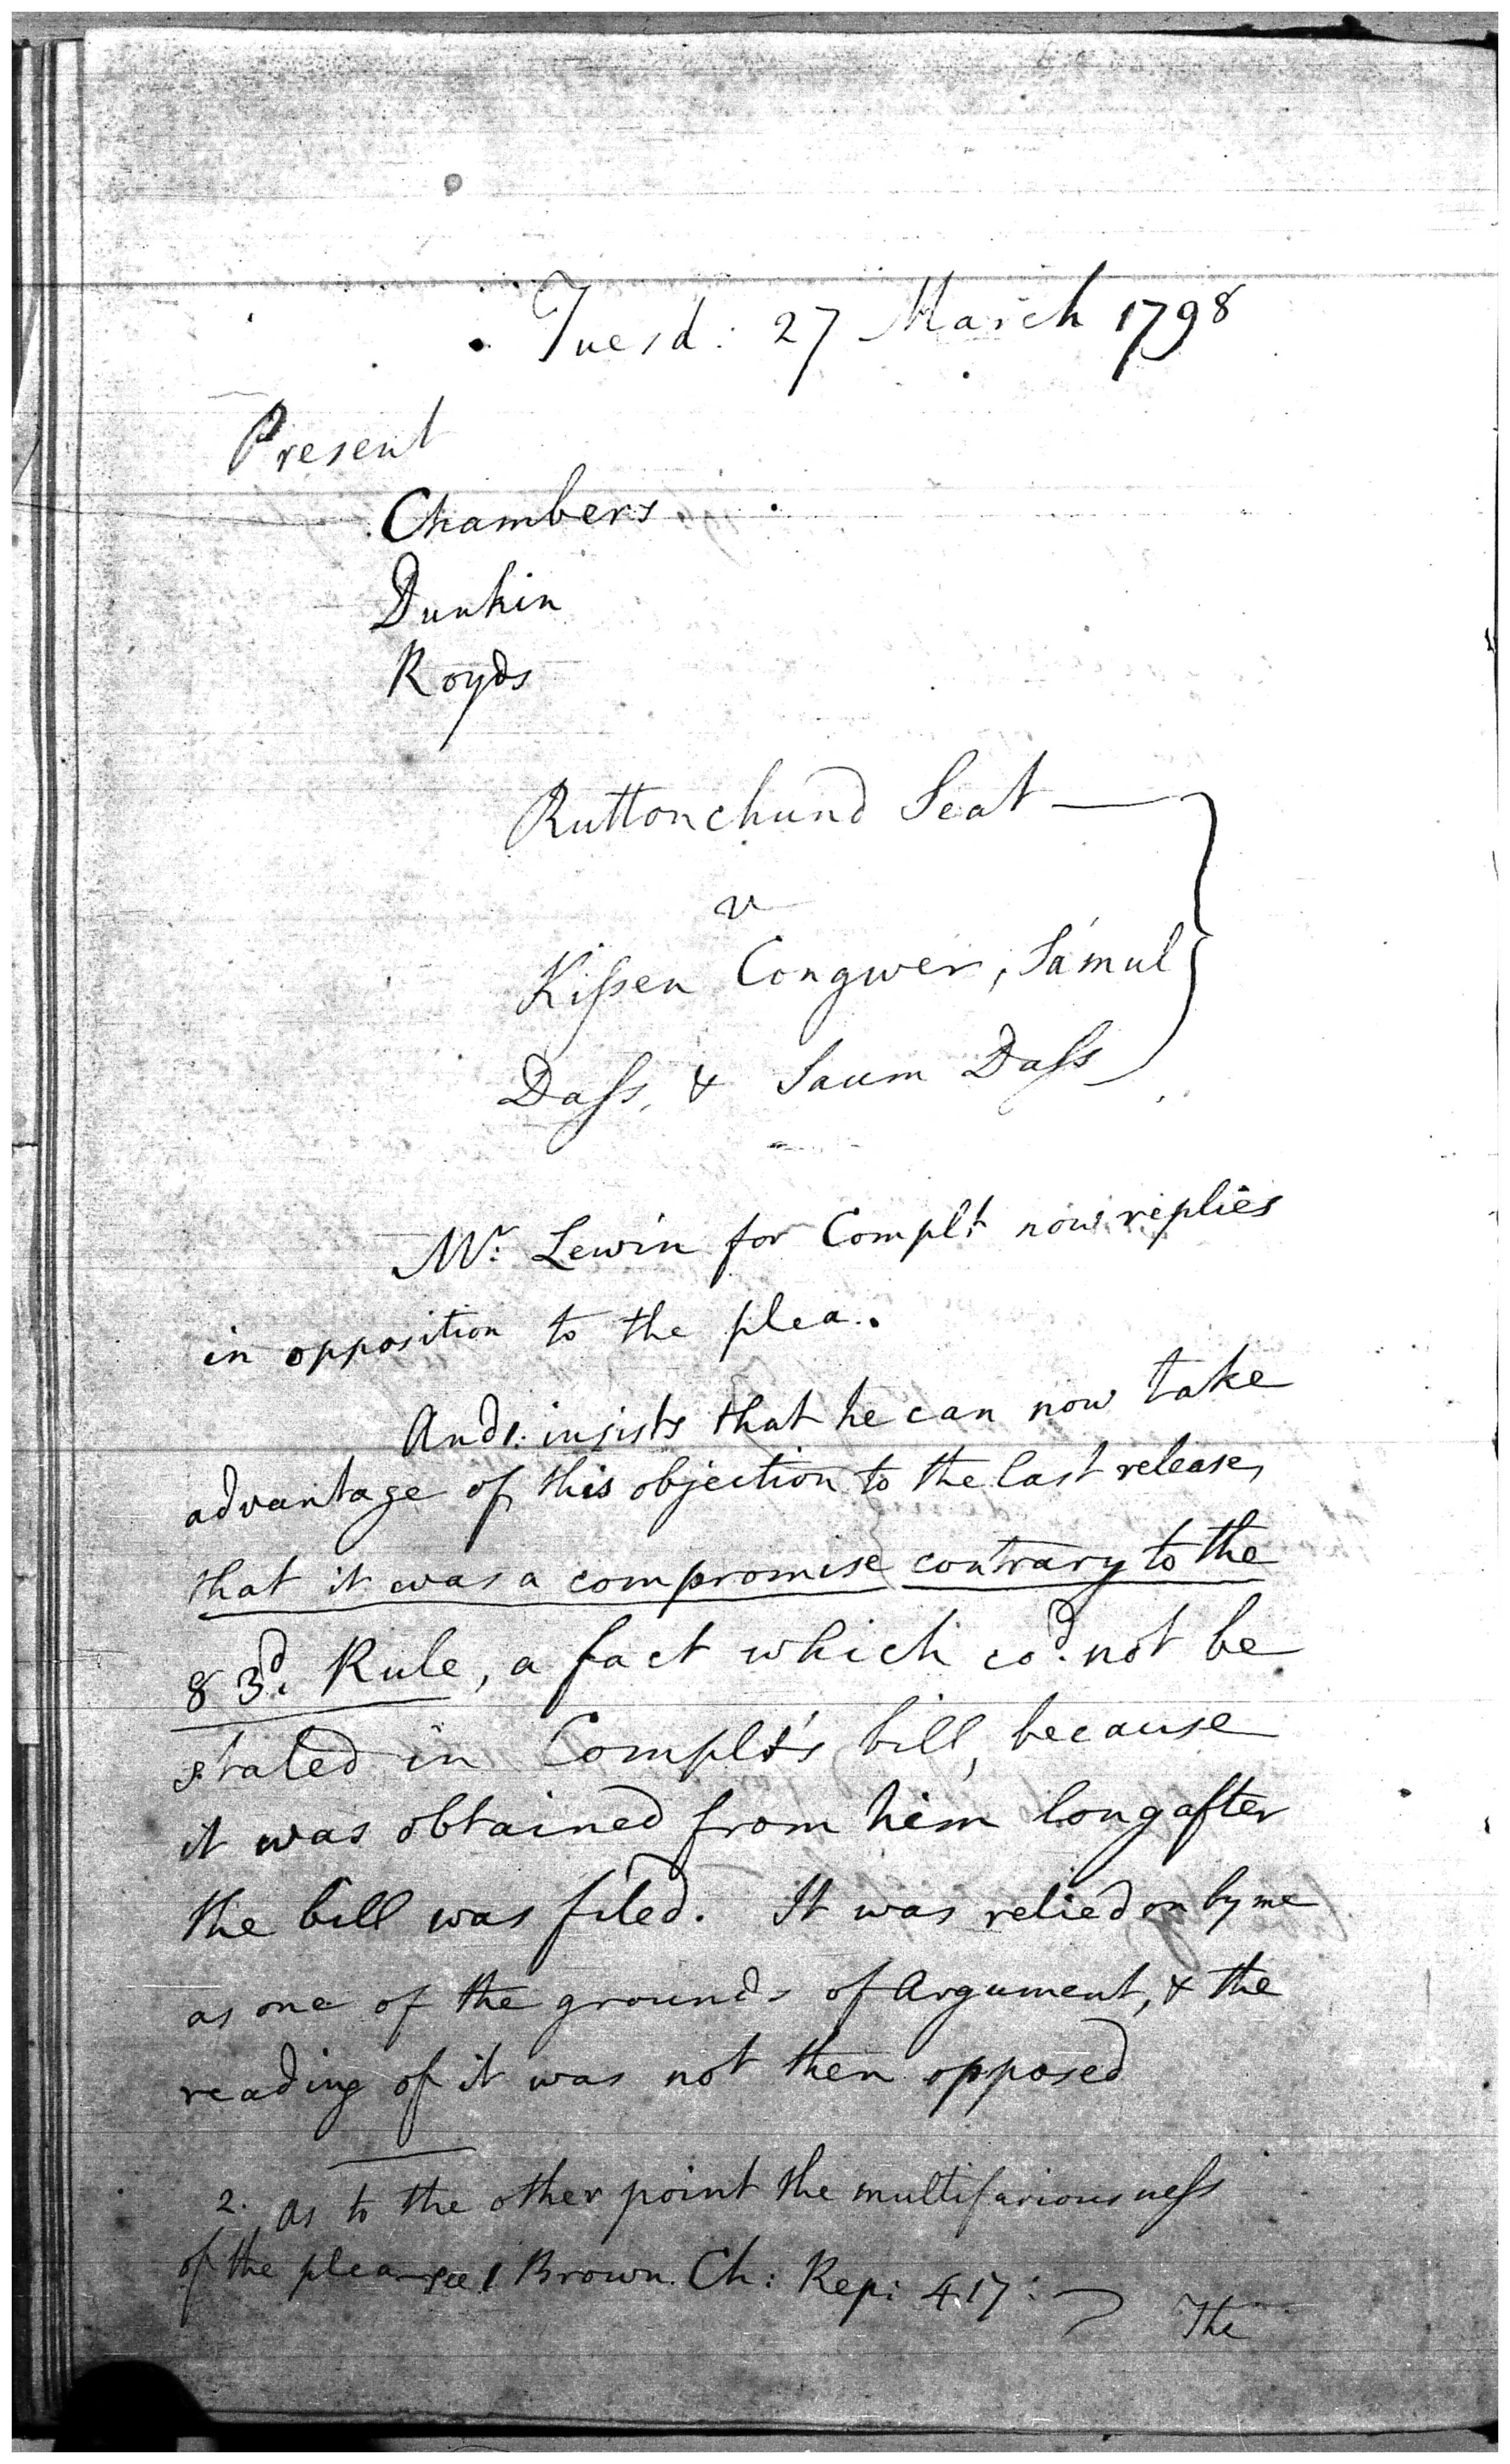 Tuesd: 27 March 1798
Present
Chambers
Dunkin
Royds
Ruttonchund Seat
v
Kiſsen Congwer, Sámul
Daſs, & Saum Daſs
Mr. Lewin for Complt now replies
in opposition to the plea.
And 1. insists that he can now take
advantage of this objection to the last release,
that it was a compromise contrary to the
83d. Rule, a fact which cod. not be
stated in Complt's bill, because
it was obtained from him long after
the bill was filed. It was relied on by me
as one of the grounds of Argument, & the
reading of it was not then opposed
2. as to the other point the multifariousneſs
of the plea see 1 Brown. Ch: Rep: 417:
The